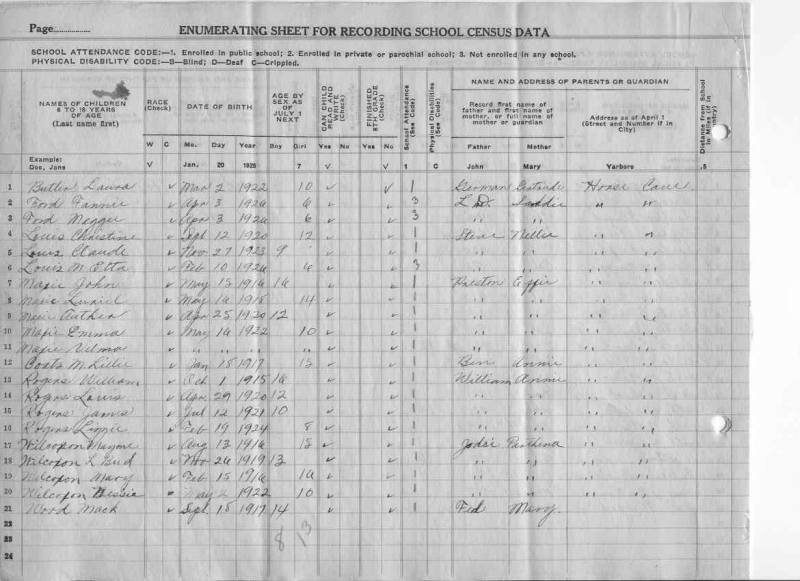 Page
ENUMERATING SHEET FOR RECORDING SCHOOL CENSUS DATA
SCHOOL ATTENDANCE CODE:—1. Enrolled in public school; 2. Enrolled in private or parochial school; 3. Not enrolled in any school.
PHYSICAL DISABILITY CODE:—B—Blind; D—Deaf C—Crippled.
NAMES OF CHILDREN 6 TO 18 YEARS OF AGE (Last name first) RACE (Check) DATE OF BIRTH AGE BY SEX AS OF JULY 1 NEXT CAN CHILD READ AND WRITE (Check) FINISHED 8TH GRADE (Check) School Attendance (See Code) Physical Disabilities (See Code) NAME AND ADDRESS OF PARENTS OR GUARDIAN Distance from School in Miles (if in Country)
Record first name of father and first name of mother, or full name of mother or guardian Address as of April 1 (Street and Number if in City)
W C Mo. Day Year Boy Girl Yes No Yes No Father Mother
Example: Doe, Jane V Jan. 20 1925 7 V V 1 C John Mary Yarboro .5
1 Butler Laura v Mar 2 1922 10 v v 1 German Gertrude Horse Cave
2 Ford Fannie v Apr 3 1926 6 v v 3 L.D. Saddie " "
3 Ford Megger v Apr 3 1926 6 v v 3 " " " "
4 Louis Christine v Sept 12 1920 12 v v 1 Steve Nellie " "
5 Louis Claude v Nov 27 1923 9 v v 1 " " " "
6 Louis M Etta v Feb 10 1926 6 v v 3 " " " "
7 John v May 15 1916 16 v v 1 Preston Effie " "
8 v May 16 1918 14 v v 1 " " " "
9 v Apr 25 1920 12 v v 1 " " " "
10 Emma v May 16 1922 10 v v 1 " " " "
11 Velma v " " " " v v 1 " " " "
12 Coats M Lillie v Jan 15 1917 15 v v 1 Ben Annie " "
13 Rogers William v Feb 1 1915 16 v v 1 William Annie " "
14 Rogers Louis v Apr 29 1920 12 v v 1 " " " "
15 Rogers James v Jul 12 1921 10 v v 1 " " " "
16 Rogers Lizzie v Feb 19 1924 8 v v 1 " " " "
17 Wilcoxon Mayme v Aug 13 1916 15 v v 1 Jodie Parthena " "
18 Wilcoxon L Bud v Nov 26 1919 13 v v 1 " " " "
19 Wilcoxon Mary v Feb 15 1916 16 v v 1 " " " "
20 Wilcoxon Bessie May 2 1922 10 v v 1 " " " "
21 Wood Mack v Sept 15 1917 14 v v 1 Fed Mary
22
23 8 13
24